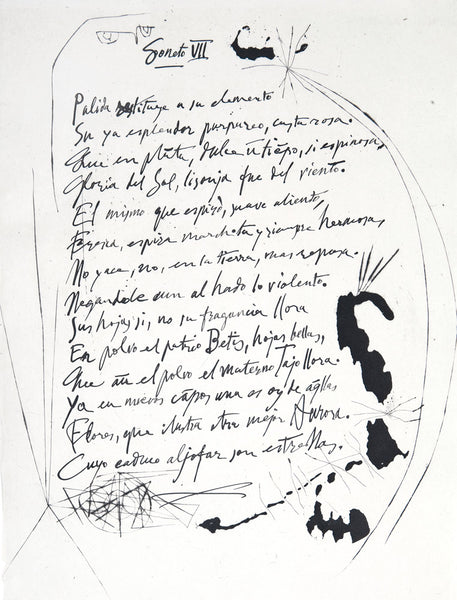 Soneto VII
Palida restituye a su elemento
Su ya esplendor purpureo, casta rosa.
Que en plãta, dulce ũ tiẽpo, si espinosa,
Gloria del Sol, lisonja fue del viento.
El mismo que espiró, suave aliento,
Fresca, espira marchita y siempre hermosa,
No yace, no, en la tierra, mas reposa.
Negandole aun al hado lo violento.
Sus hojas si, no su fragancia llora
En polvo el patrio Betis, hojas bellas,
Que aũ el polvo el materno Tajo llora.
Ya en nuevos cãpos, una es oy de aq̃llas
Flores, que ilustra otra mejor Aurora.
Cuyo caduco aljofar son estrellas.